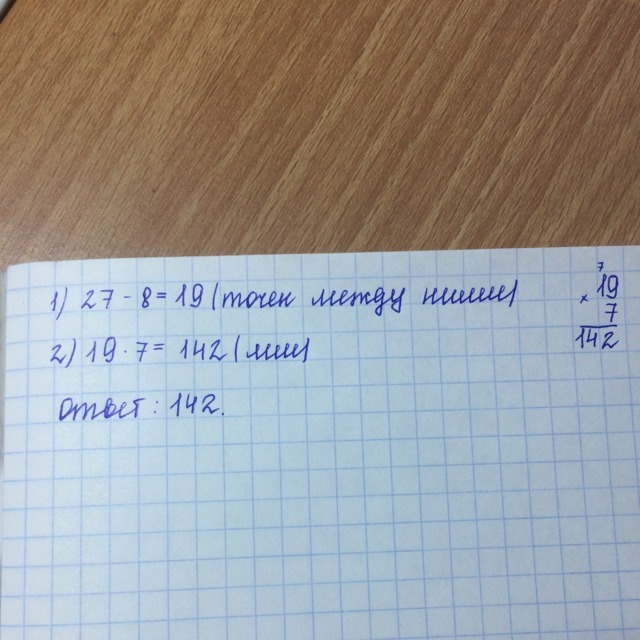 1) 27 - 8 = 19 (точек между ними)
2) 19 · 7 = 142 (мин)
Ответ: 142.
7
× 19
7
142